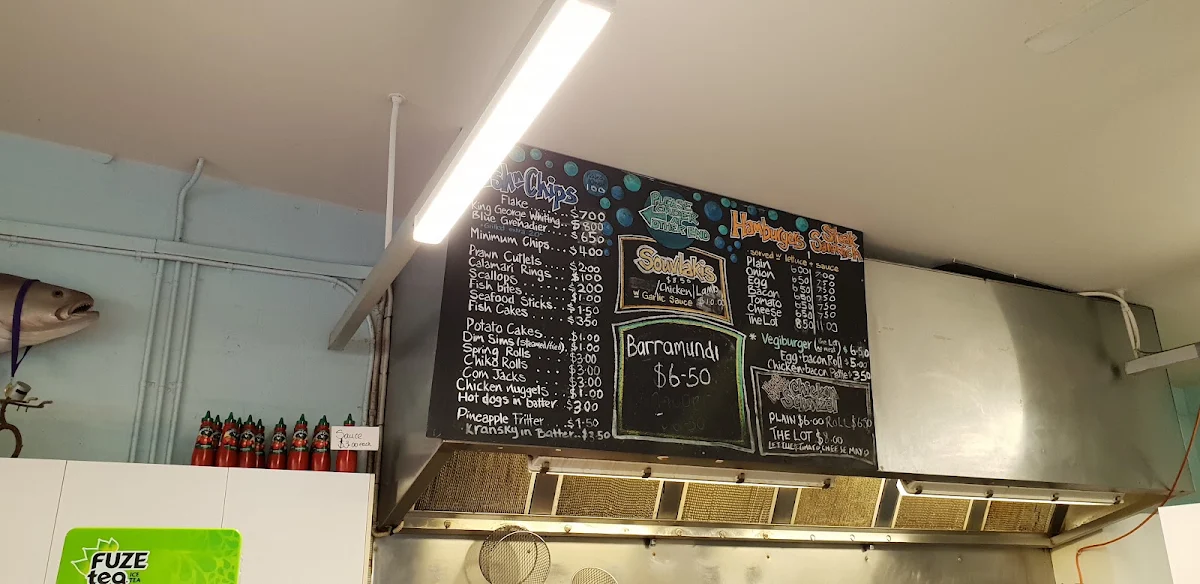 sh n' Chips
Flake . . $7.00
King George Whiting . . $8.00
Blue Grenadier . . $6.50
Minimum Chips . . . $4.00
Prawn Cutlets . . . $2.00
Calamari Rings . . . $1.00
Scallops . . . $2.00
Fish bites . . . $1.00
Seafood Sticks . . . $1.50
Fish Cakes . . . $3.50
Potato Cakes . . . $1.00
Dim Sims (steamed/fried) . . $1.00
Spring Rolls . . . $3.00
Chiko Rolls . . . $3.00
Corn Jacks . . . $3.00
Chicken nuggets . . . $1.00
Hot dogs in batter . . $3.00
Pineapple Fritter . . $1.50
Kransky in Batter . . $3.50
PLEASE
ORDER
@
OTHER END
Souvlakis
$8.50
/Chicken/Lamb
w Garlic Sauce $10.00
Barramundi
$6-50
Hamburgers
Steak
Sandwich
served w lettuce + sauce
Plain 6.50 7.00
Onion 6.50 7.50
Egg 6.50 7.50
Bacon 6.50 7.50
Tomato 6.50 7.50
Cheese 6.50 7.50
The Lot 8.50 11.00
* Vegiburger $6.50
Egg + bacon Roll $5.00
Chicken + bacon Roll $3.50
Chicken
PLAIN $6.00 ROLL $6.50
THE LOT $8.00
LETTUCE, TOMATO, CHEESE, MAYO
Sauce
$3.00 each
FUZE
tea
ICE
TEA